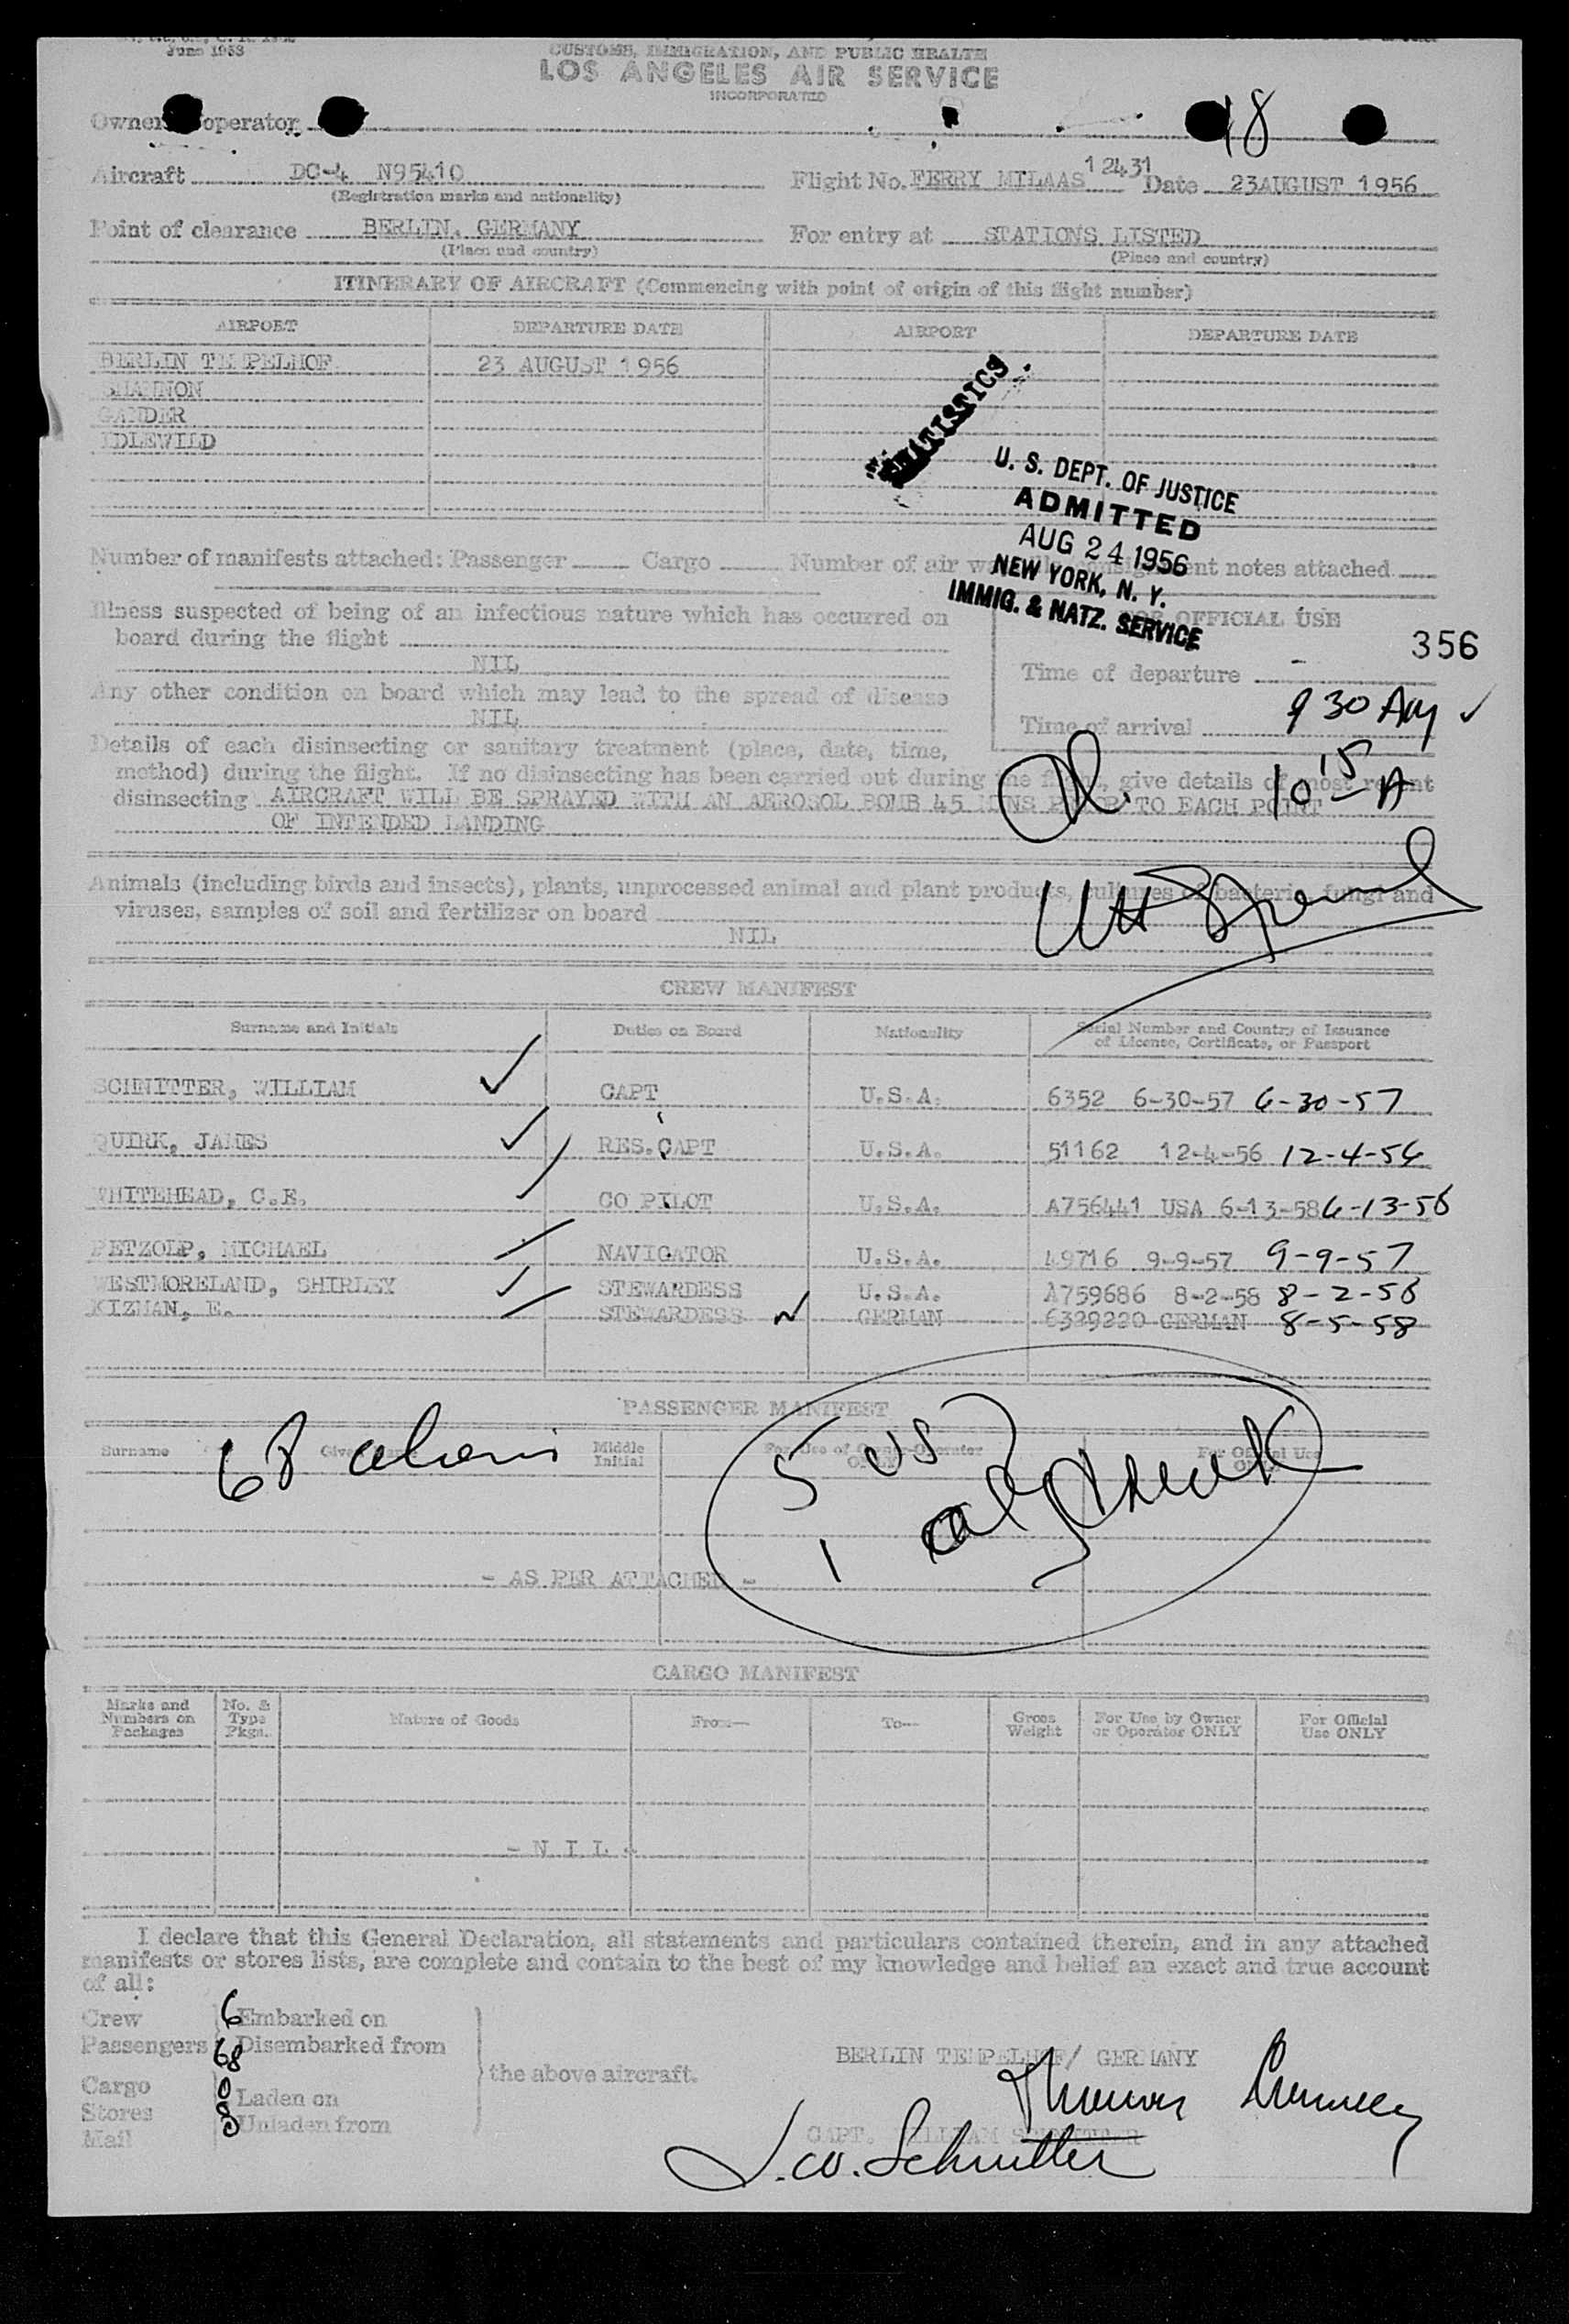 June 1953
CUSTOMS, IMMIGRATION, AND PUBLIC HEALTH
LOS ANGELES AIR SERVICE
INCORPORATED
Owner operator
18
Aircraft DC-4 N95410 Flight No. FERRY MILAAS 12431 Date 23AUGUST 1956
(Registration marks and nationality)
Point of clearance BERLIN, GERMANY For entry at STATIONS LISTED
(Place and country) (Place and country)
ITINERARY OF AIRCRAFT (Commencing with point of origin of this flight number)
AIRPORT DEPARTURE DATE AIRPORT DEPARTURE DATE
BERLIN TEMPELHOF 23 AUGUST 1956
SHANNON
GANDER
IDLEWILD
STATISTICS
U. S. DEPT. OF JUSTICE
ADMITTED
AUG 24 1956
NEW YORK, N. Y.
IMMIG. & NATZ. SERVICE
Number of manifests attached: Passenger Cargo Number of air notes attached
Illness suspected of being of an infectious nature which has occurred on
board during the flight
NIL
FOR OFFICIAL USE
356
Time of departure -
Any other condition on board which may lead to the spread of disease
NIL
Time of arrival 9 30 AM
Details of each disinsecting or sanitary treatment (place, date, time,
method) during the flight. If no disinsecting has been carried out during the flight, give details of most recent
disinsecting AIRCRAFT WILL BE SPRAYED WITH AN AEROSOL BOMB 45 MINS PRIOR TO EACH POINT
OF INTENDED LANDING
10 15 A
Animals (including birds and insects), plants, unprocessed animal and plant products, cultures of bacteria, fungi and
viruses, samples of soil and fertilizer on board
NIL
CREW MANIFEST
Surname and Initials Duties on Board Nationality Serial Number and Country of Issuance
of License, Certificate, or Passport
SCHNITTER, WILLIAM CAPT U.S.A. 6352 6-30-57 6-30-57
QUIRK, JAMES RES.CAPT U.S.A. 51162 12-4-56 12-4-56
WHITEHEAD, C.E. CO PILOT U.S.A. A756441 USA 6-13-58 6-13-58
PETZOLP, MICHAEL NAVIGATOR U.S.A. 49716 9-9-57 9-9-57
WESTMORELAND, SHIRLEY STEWARDESS U.S.A. A759686 8-2-58 8-2-58
KIZMAN, E. STEWARDESS GERMAN 6329220 GERMAN 8-5-58
PASSENGER MANIFEST
Surname Given Name Middle Initial For Use of Owner-Operator ONLY For Official Use ONLY
68 aliens
5 US
1
- AS PER ATTACHED -
CARGO MANIFEST
Marks and Numbers on Packages No. & Type Pkgs. Nature of Goods From— To— Gross Weight For Use by Owner or Operator ONLY For Official Use ONLY
- N I L -
I declare that this General Declaration, all statements and particulars contained therein, and in any attached
manifests or stores lists, are complete and contain to the best of my knowledge and belief an exact and true account
of all:
Crew 6 Embarked on
Passengers 68 Disembarked from
the above aircraft.
Cargo 0 Laden on
Stores
Mail Unladen from
BERLIN TEMPELHOF/ GERMANY
CAPT. WILLIAM SCHNITTER
J.W. Schnitter